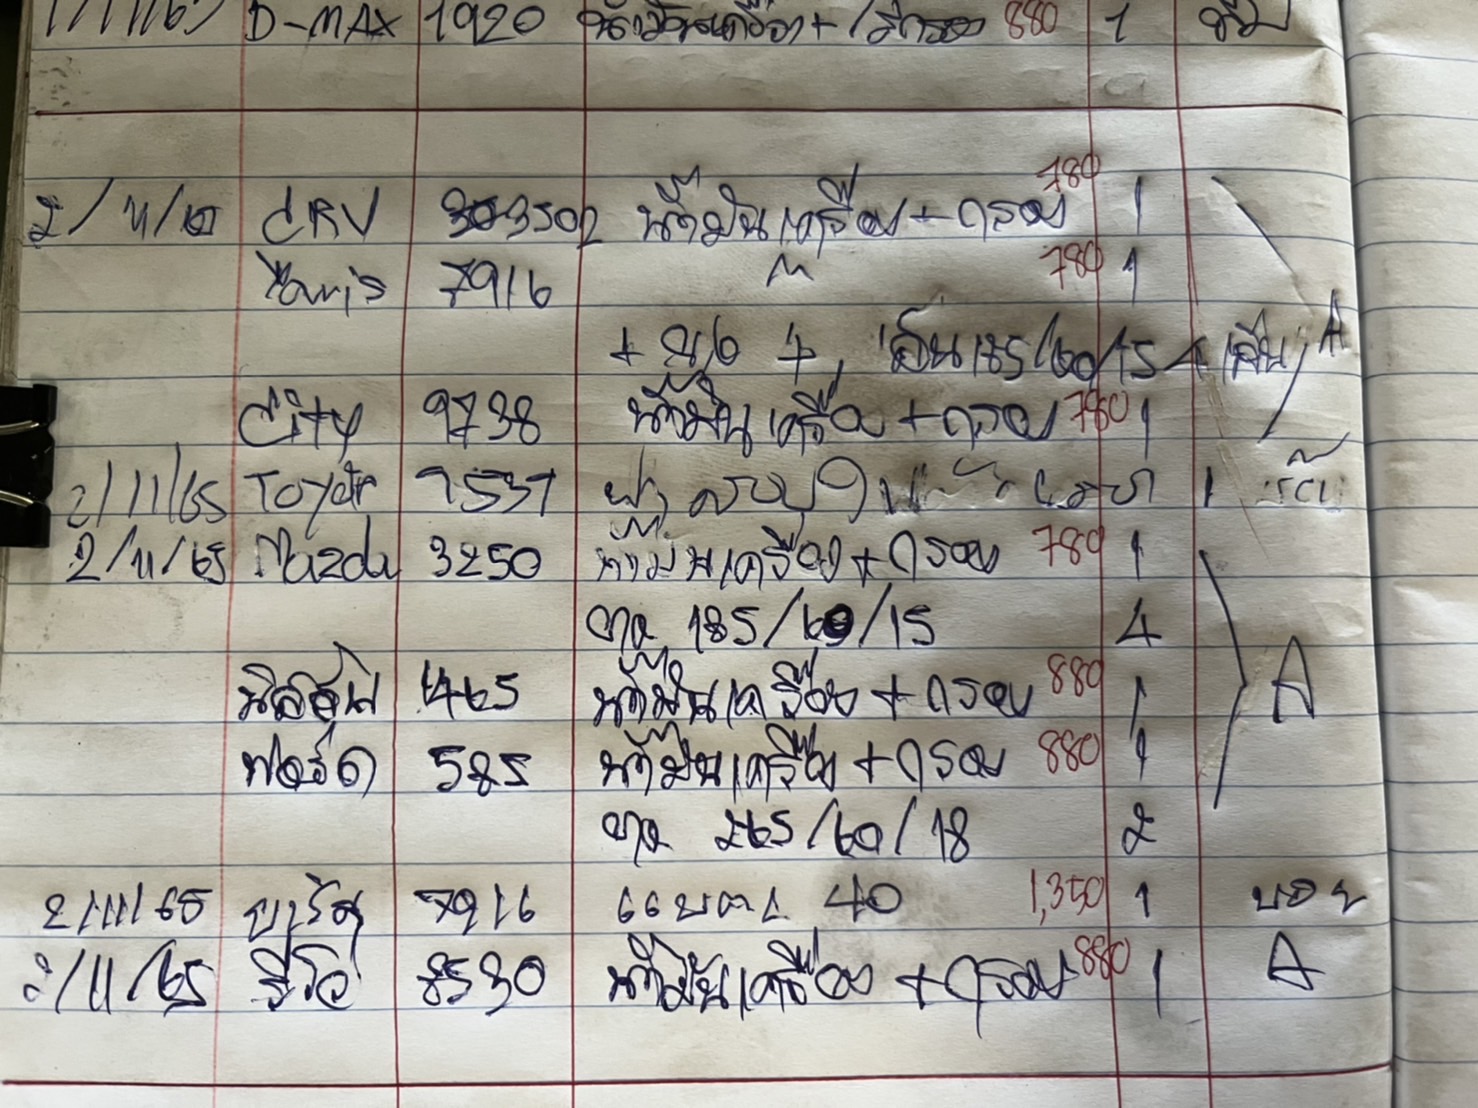 1/11/65 D-MAX 1920 น้ำมันเครื่อง + กรอง 880 1
2/11/65 CRV 3502 น้ำมันเครื่อง + กรอง 780 1
Yaris 7916 " 780 1
+ 185/60/15 4 เส้น A
City 9738 น้ำมันเครื่อง + กรอง 780 1
2/11/65 Toyota 9537 1
2/11/65 Mazda 3250 น้ำมันเครื่อง + กรอง 780 1
ยาง 185/60/15 4
นิสสัน 1465 น้ำมันเครื่อง + กรอง 880 1 A
ฟอร์ด 585 น้ำมันเครื่อง + กรอง 880 1
ยาง 265/60/18 2
2/11/65 ยาริส 7916 แบตเ 40 1,350 1 บอย
2/11/65 รีโว่ 8530 น้ำมันเครื่อง + กรอง 880 1 A